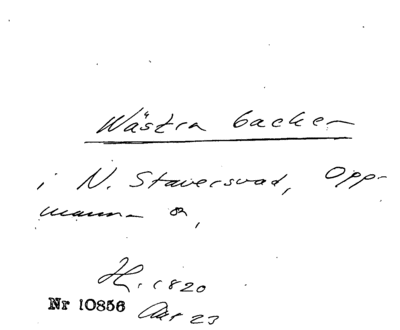 Wästra backen
i N. Staversvad, Opp-
manna s,
H. 1820
Nr 10856 Akt 23